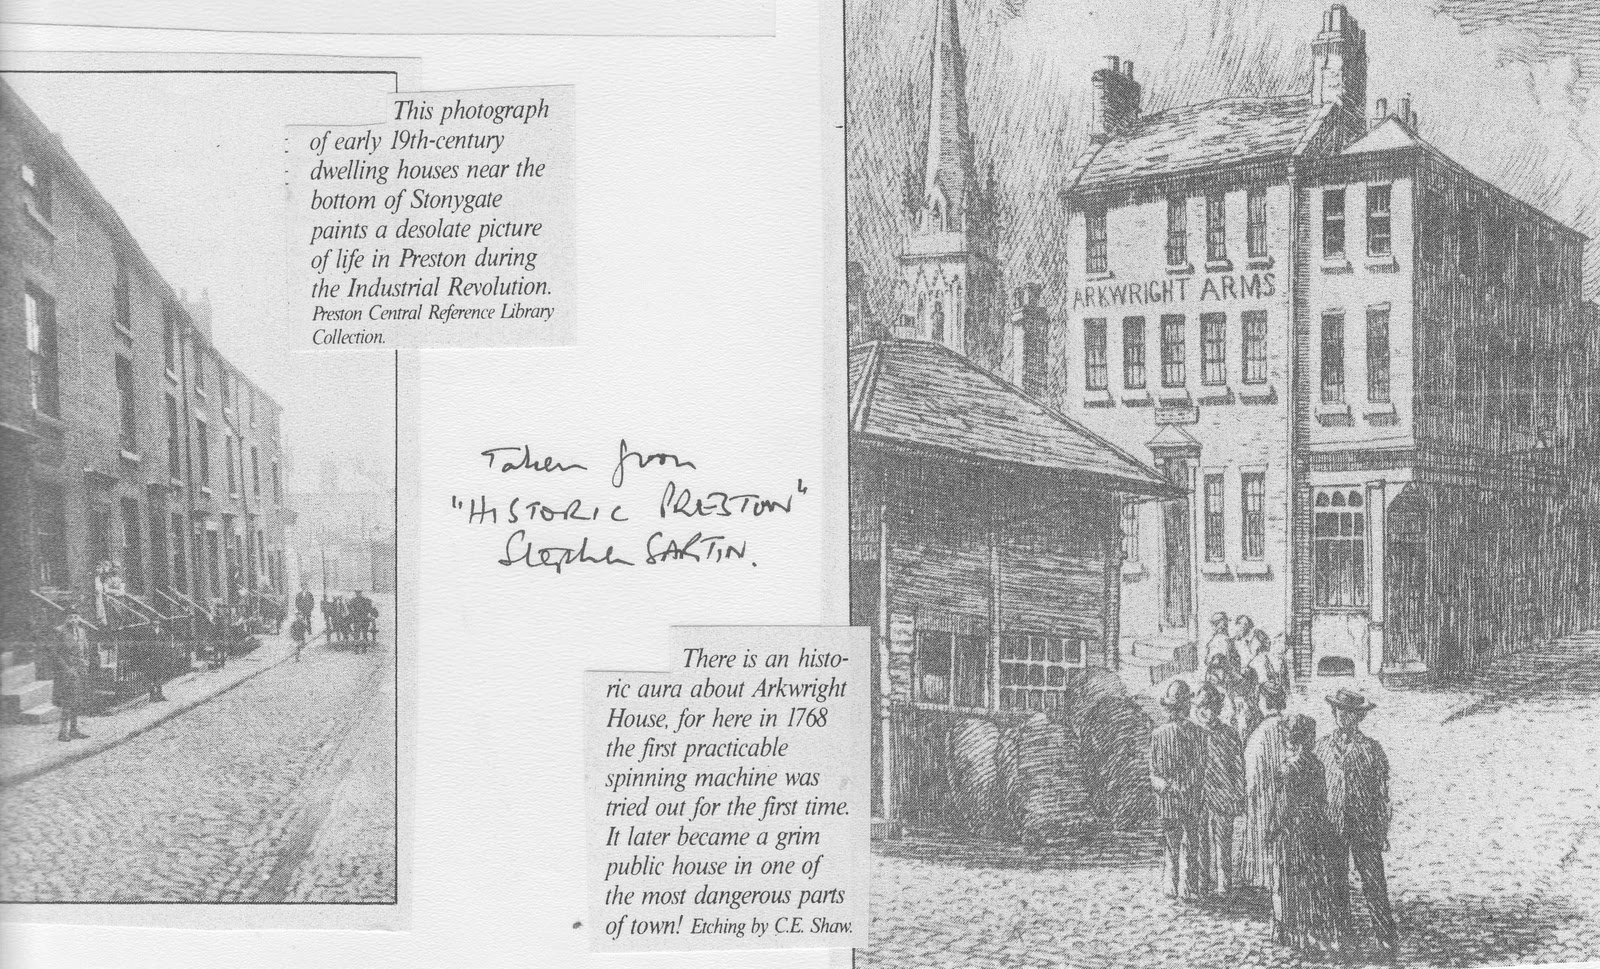 This photograph
of early 19th-century
dwelling houses near the
bottom of Stonygate
paints a desolate picture
of life in Preston during
the Industrial Revolution.
Preston Central Reference Library
Collection.
Taken from
"HISTORIC PRESTON"
Stephen SARTIN.
There is an histo-
ric aura about Arkwright
House, for here in 1768
the first practicable
spinning machine was
tried out for the first time.
It later became a grim
public house in one of
the most dangerous parts
of town! Etching by C.E. Shaw.
ARKWRIGHT ARMS